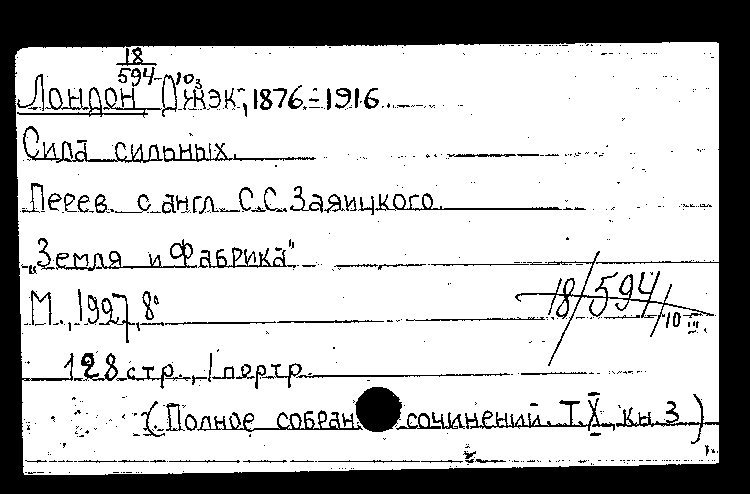 18
594-10₃
Лондон Джэк, 1876-1916.
Сила сильных.
Перев. с англ. С.С. Заяицкого.
„Земля и Фабрика"
М., 1927, 8°
18/594/10 III.
128 стр., 1 портр.
(Полное собран сочинений. Т. X, кн. 3)